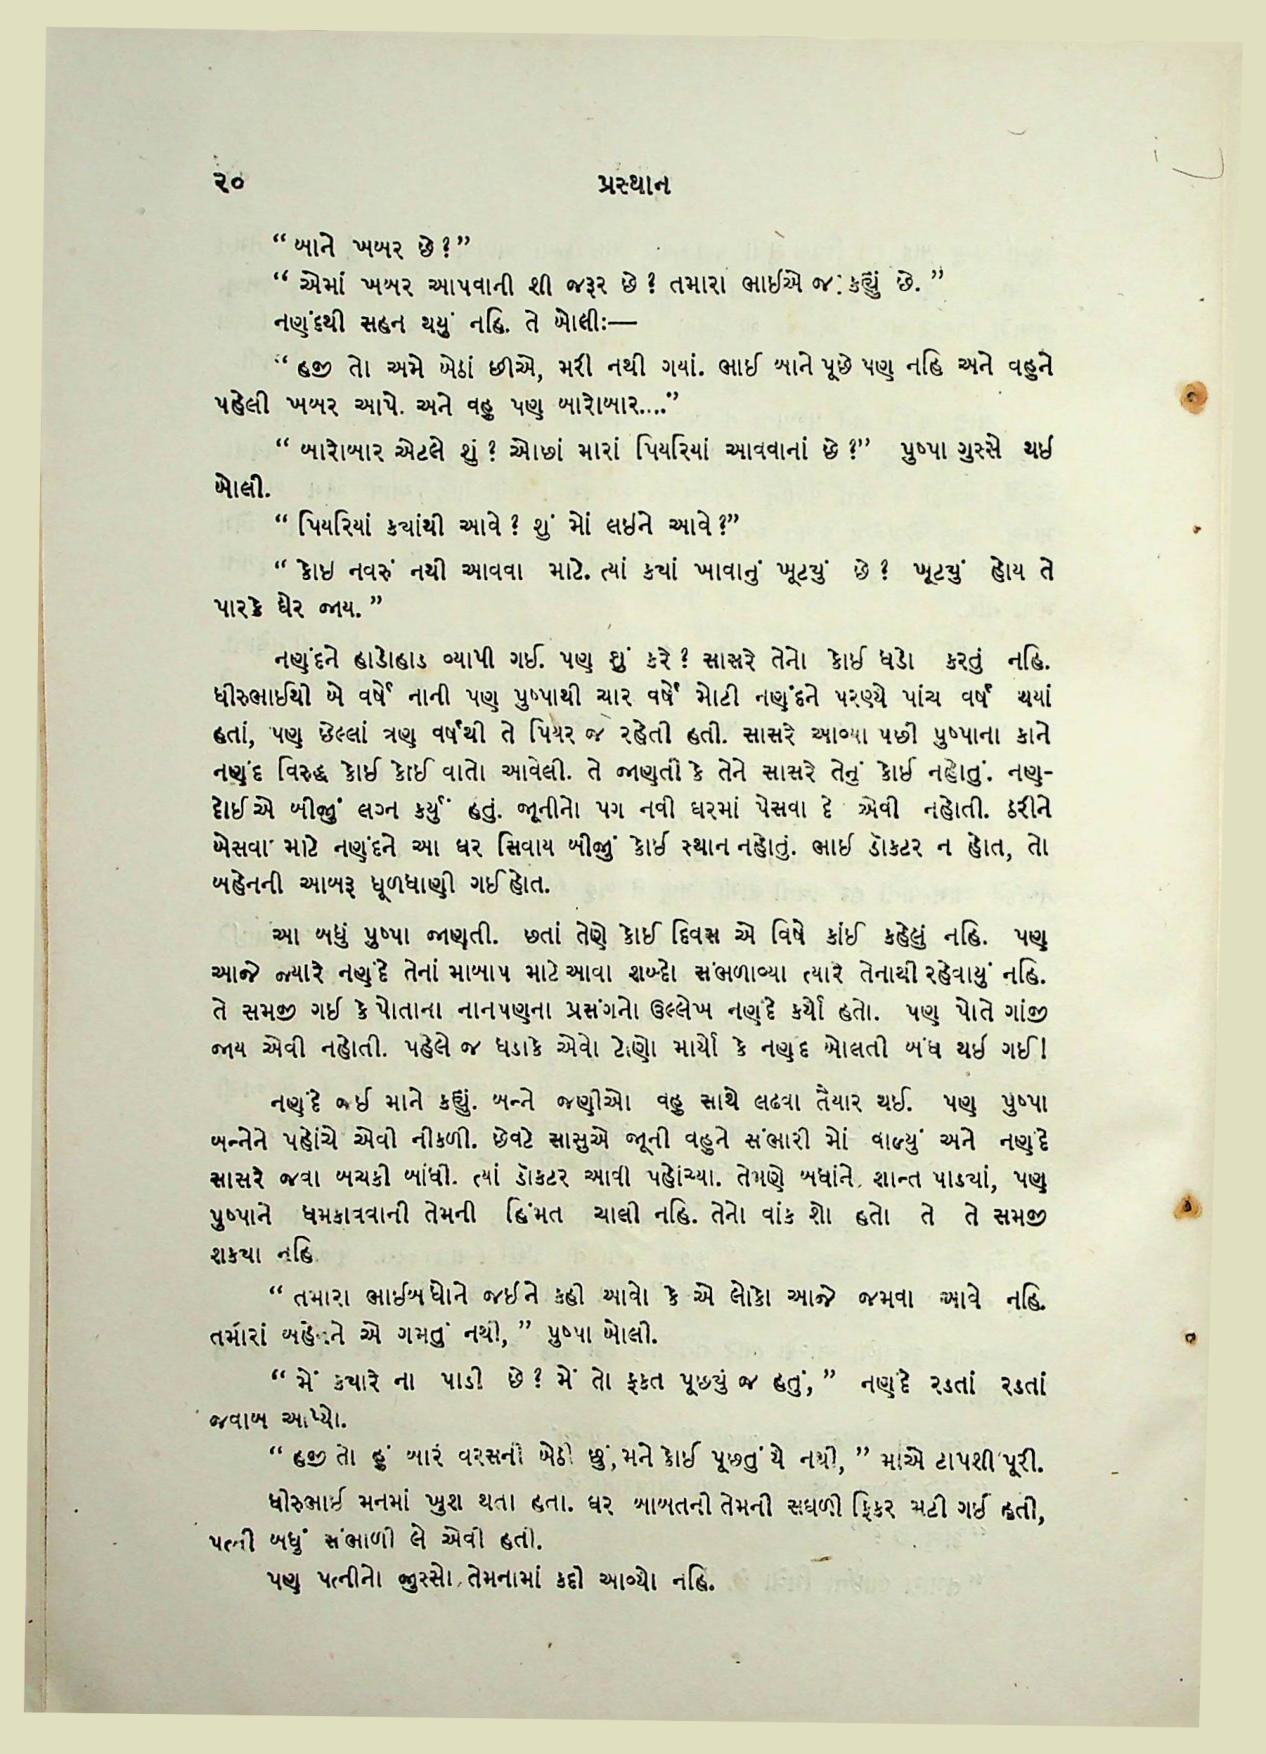 ૨૦
પ્રસ્થાન
“ બાને ખબર છે?”
“ એમાં ખબર આપવાની શી જરૂર છે? તમારા ભાઈએ જ કહ્યું છે. ”
નણંદથી સહન થયું નહિ. તે બોલીઃ—
“ હજી તો અમે બેઠાં છીએ, મરી નથી ગયાં. ભાઈ બાને પૂછે પણ નહિ અને વહુને
પહેલી ખબર આપે. અને વહુ પણ બારોબાર....”
“ બારોબાર એટલે શું? ઓછાં મારાં પિયરિયાં આવવાનાં છે?” પુષ્પા ગુસ્સે થઈ
બોલી.
“ પિયરિયાં ક્યાંથી આવે? શું મોં લઇને આવે?”
“ કોઇ નવરું નથી આવવા માટે. ત્યાં ક્યાં ખાવાનું ખૂટ્યું છે? ખૂટ્યું હોય તે
પારકે ઘેર જાય. ”
નણંદને હાડોહાડ વ્યાપી ગઈ. પણ શું કરે? સાસરે તેનો કોઈ ધડો કરતું નહિ.
ધીરુભાઈથી બે વર્ષે નાની પણ પુષ્પાથી ચાર વર્ષે મોટી નણંદને પરણ્યે પાંચ વર્ષ થયાં
હતાં, પણ છેલ્લાં ત્રણ વર્ષથી તે પિયર જ રહેતી હતી. સાસરે આવ્યા પછી પુષ્પાના કાને
નણંદ વિરુદ્ધ કોઈ કોઈ વાતો આવેલી. તે જાણતી કે તેને સાસરે તેનું કોઈ નહોતું. નણ-
દોઈએ બીજું લગ્ન કર્યું હતું. જૂનીનો પગ નવી ઘરમાં પેસવા દે એવી નહોતી. ઠરીને
બેસવા માટે નણંદને આ ઘર સિવાય બીજું કોઈ સ્થાન નહોતું. ભાઈ ડૉક્ટર ન હોત, તો
બહેનની આબરૂ ધૂળધાણી ગઈ હોત.
આ બધું પુષ્પા જાણતી. છતાં તેણે કોઈ દિવસ એ વિષે કાંઈ કહેલું નહિ. પણ
આજે જ્યારે નણંદે તેનાં માબાપ માટે આવા શબ્દો સંભળાવ્યા ત્યારે તેનાથી રહેવાયું નહિ.
તે સમજી ગઈ કે પોતાના નાનપણના પ્રસંગનો ઉલ્લેખ નણંદે કર્યો હતો. પણ પોતે ગાંજી
જાય એવી નહોતી. પહેલે જ ધડાકે એવો ટોણો માર્યો કે નણંદ બોલતી બંધ થઇ ગઈ!
નણંદે જઈ માને કહ્યું. બન્ને જણીઓ વહુ સાથે લઢવા તૈયાર થઈ. પણ પુષ્પા
બન્નેને પહોંચે એવી નીકળી. છેવટે સાસુએ જૂની વહુને સંભારી મોં વાળ્યું અને નણંદે
સાસરે જવા બચકી બાંધી. ત્યાં ડૉક્ટર આવી પહોંચ્યા. તેમણે બધાંને શાન્ત પાડ્યાં, પણ
પુષ્પાને ધમકાવવાની તેમની હિંમત ચાલી નહિ. તેનો વાંક શો હતો તે તે સમજી
શક્યા નહિ
“ તમારા ભાઈબંધોને જઈને કહી આવો કે એ લોકો આજે જમવા આવે નહિ.
તમારાં બહેનને એ ગમતું નથી, ” પુષ્પા બોલી.
“ મેં ક્યારે ના પાડી છે? મેં તો ફક્ત પૂછ્યું જ હતું, ” નણંદે રડતાં રડતાં
જવાબ આપ્યો.
“ હજી તો હું બાર વરસની બેઠી છું, મને કોઈ પૂછતું યે નથી, ” માએ ટાપશી પૂરી.
ધીરુભાઈ મનમાં ખુશ થતા હતા. ઘર બાબતની તેમની સઘળી ફિકર મટી ગઈ હતી,
પત્ની બધું સંભાળી લે એવી હતી.
પણ પત્નીનો જુસ્સો તેમનામાં કદી આવ્યો નહિ.